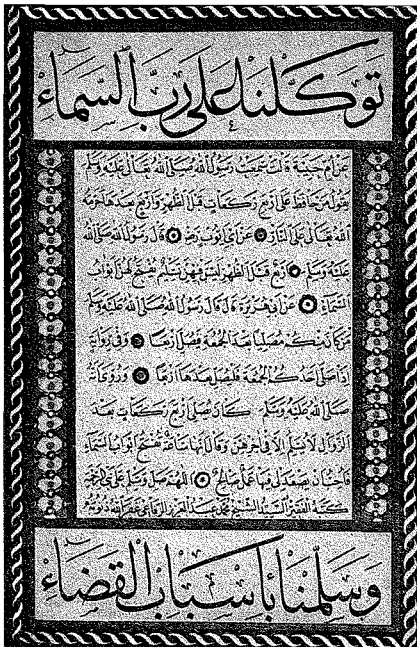 توكلنا على رب السماء
عن أم حبيبة قالت سمعت رسول الله صلى الله تعالى عليه وسلم
يقول من حافظ على أربع ركعات قبل الظهر وأربع بعدها حرمه
الله تعالى على النار عن أبي أيوب رضي قال رسول الله صلى الله
عليه وسلم أربع قبل الظهر ليس فيهن تسليم تفتح لهن أبواب
السماء عن أبي هريرة قال قال رسول الله صلى الله عليه وسلم
من كان منكم مصليا بعد الجمعة فليصل أربعا وفي رواية
إذا صلى أحدكم الجمعة فليصل بعدها أربعا وروي أنه
صلى الله عليه وسلم كان يصلي أربع ركعات بعد
الزوال لا يسلم إلا في آخرهن وقال إنها ساعة تفتح أبواب السماء
فأحب أن يصعد لي فيها عمل صالح اللهم صل وسلم على نبي الرحمة
كتبه الفقير السيد الشيخ محمد عبد العزيز الرفاعي غفر الله ذنوبه
وسلمنا بأسباب القضاء